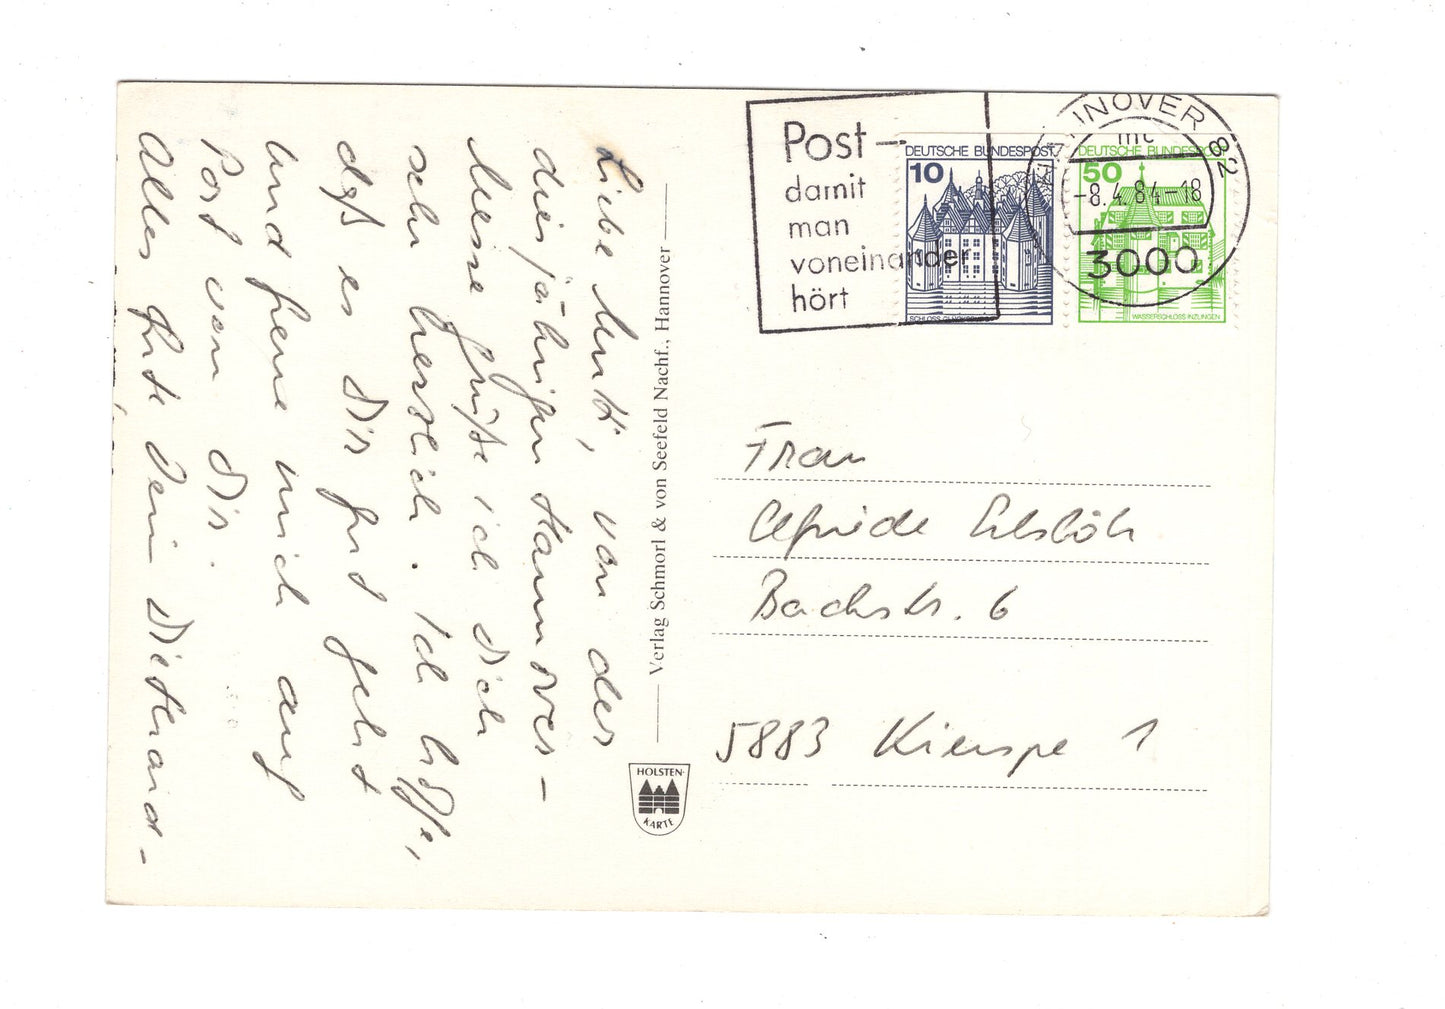 Liebe Mutti, von der
diesjährigen Hannover-
Messe grüße ich Dich
sehr herzlich. Ich hoffe,
daß es Dir gut geht
und freue mich auf
Post von Dir.
Alles Gute Dein
Verlag Schmorl & von Seefeld Nachf., Hannover
HOLSTEN-
KARTE
Post-
damit
man
voneinander
hört
DEUTSCHE BUNDESPOST
10
SCHLOSS GLÜCKSBURG
DEUTSCHE BUNDESPOST
50
WASSERSCHLOSS INZLINGEN
HANNOVER 82
-8.4.84-18
3000
Frau
Bachstr. 6
5883 Kierspe 1